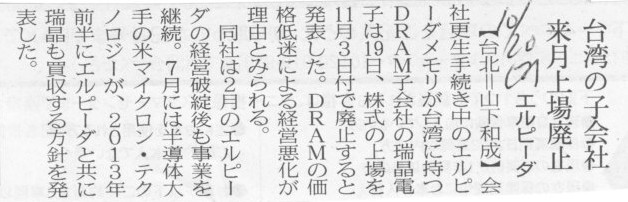 台湾の子会社
来月上場廃止
エルピーダ
10/20
【台北＝山下和成】会
社更生手続き中のエルピ
ーダメモリが台湾に持つ
DRAM子会社の瑞晶電
子は19日、株式の上場を
11月3日付で廃止すると
発表した。DRAMの価
格低迷による経営悪化が
理由とみられる。
同社は2月のエルピー
ダの経営破綻後も事業を
継続。7月には半導体大
手の米マイクロン・テク
ノロジーが、2013年
前半にエルピーダと共に
瑞晶も買収する方針を発
表した。